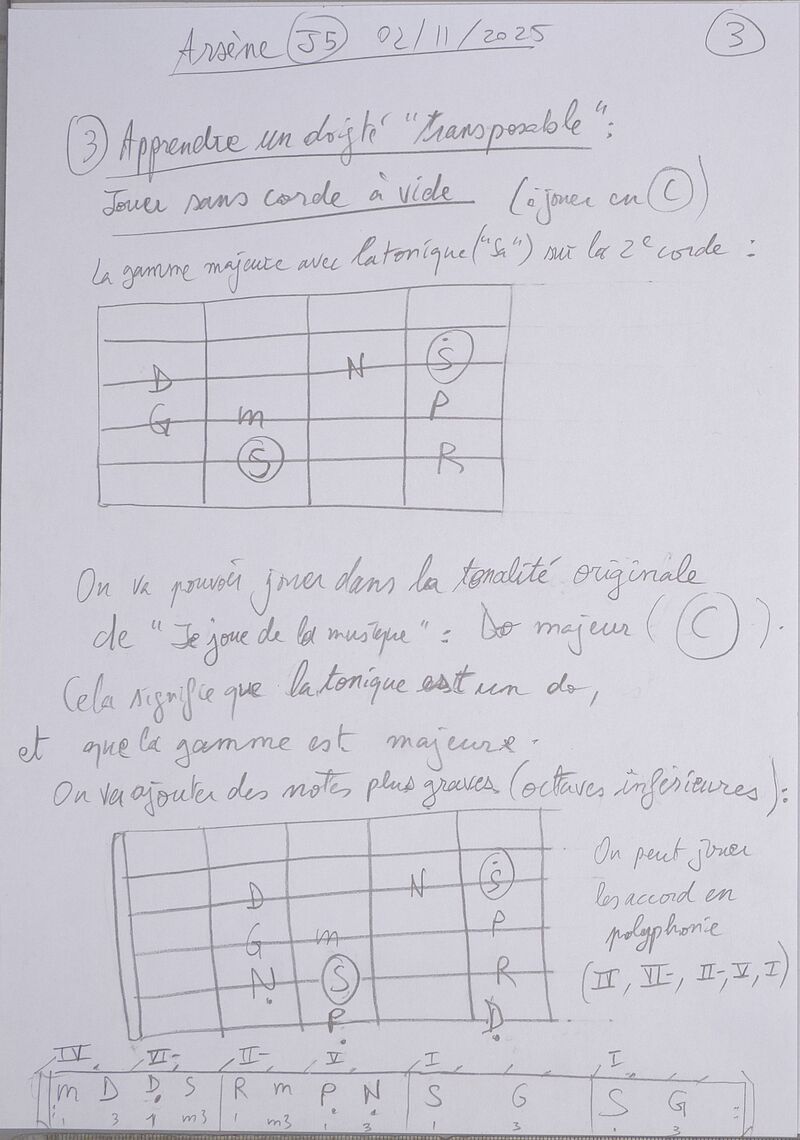 Arsène J5 02/11/2025 3
3 Apprendre un doigté "transposable":
Jouer sans corde à vide (à jouer en C)
La gamme majeure avec la tonique ("Sa") sur la 2e corde :
D N Ṡ
G m P
S R
On va pouvoir jouer dans la tonalité originale
de "Je joue de la musique" : Do majeur ( C ).
Cela signifie que la tonique est un do,
et que la gamme est majeure.
On va ajouter des notes plus graves (octaves inférieures) :
D N Ṡ
G m P
Ṇ S R
P̣ Ḍ
On peut jouer
les accord en
polyphonie
(IV, VI-, II-, V, I)
IV VI- II- V I I
m D Ḍ S R m P̣ Ṇ S G S G
1 3 1 m3 1 m3 1 3 1 3 1 3